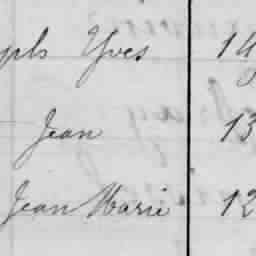 Yves 14
Jean 13
Jean Marie 12